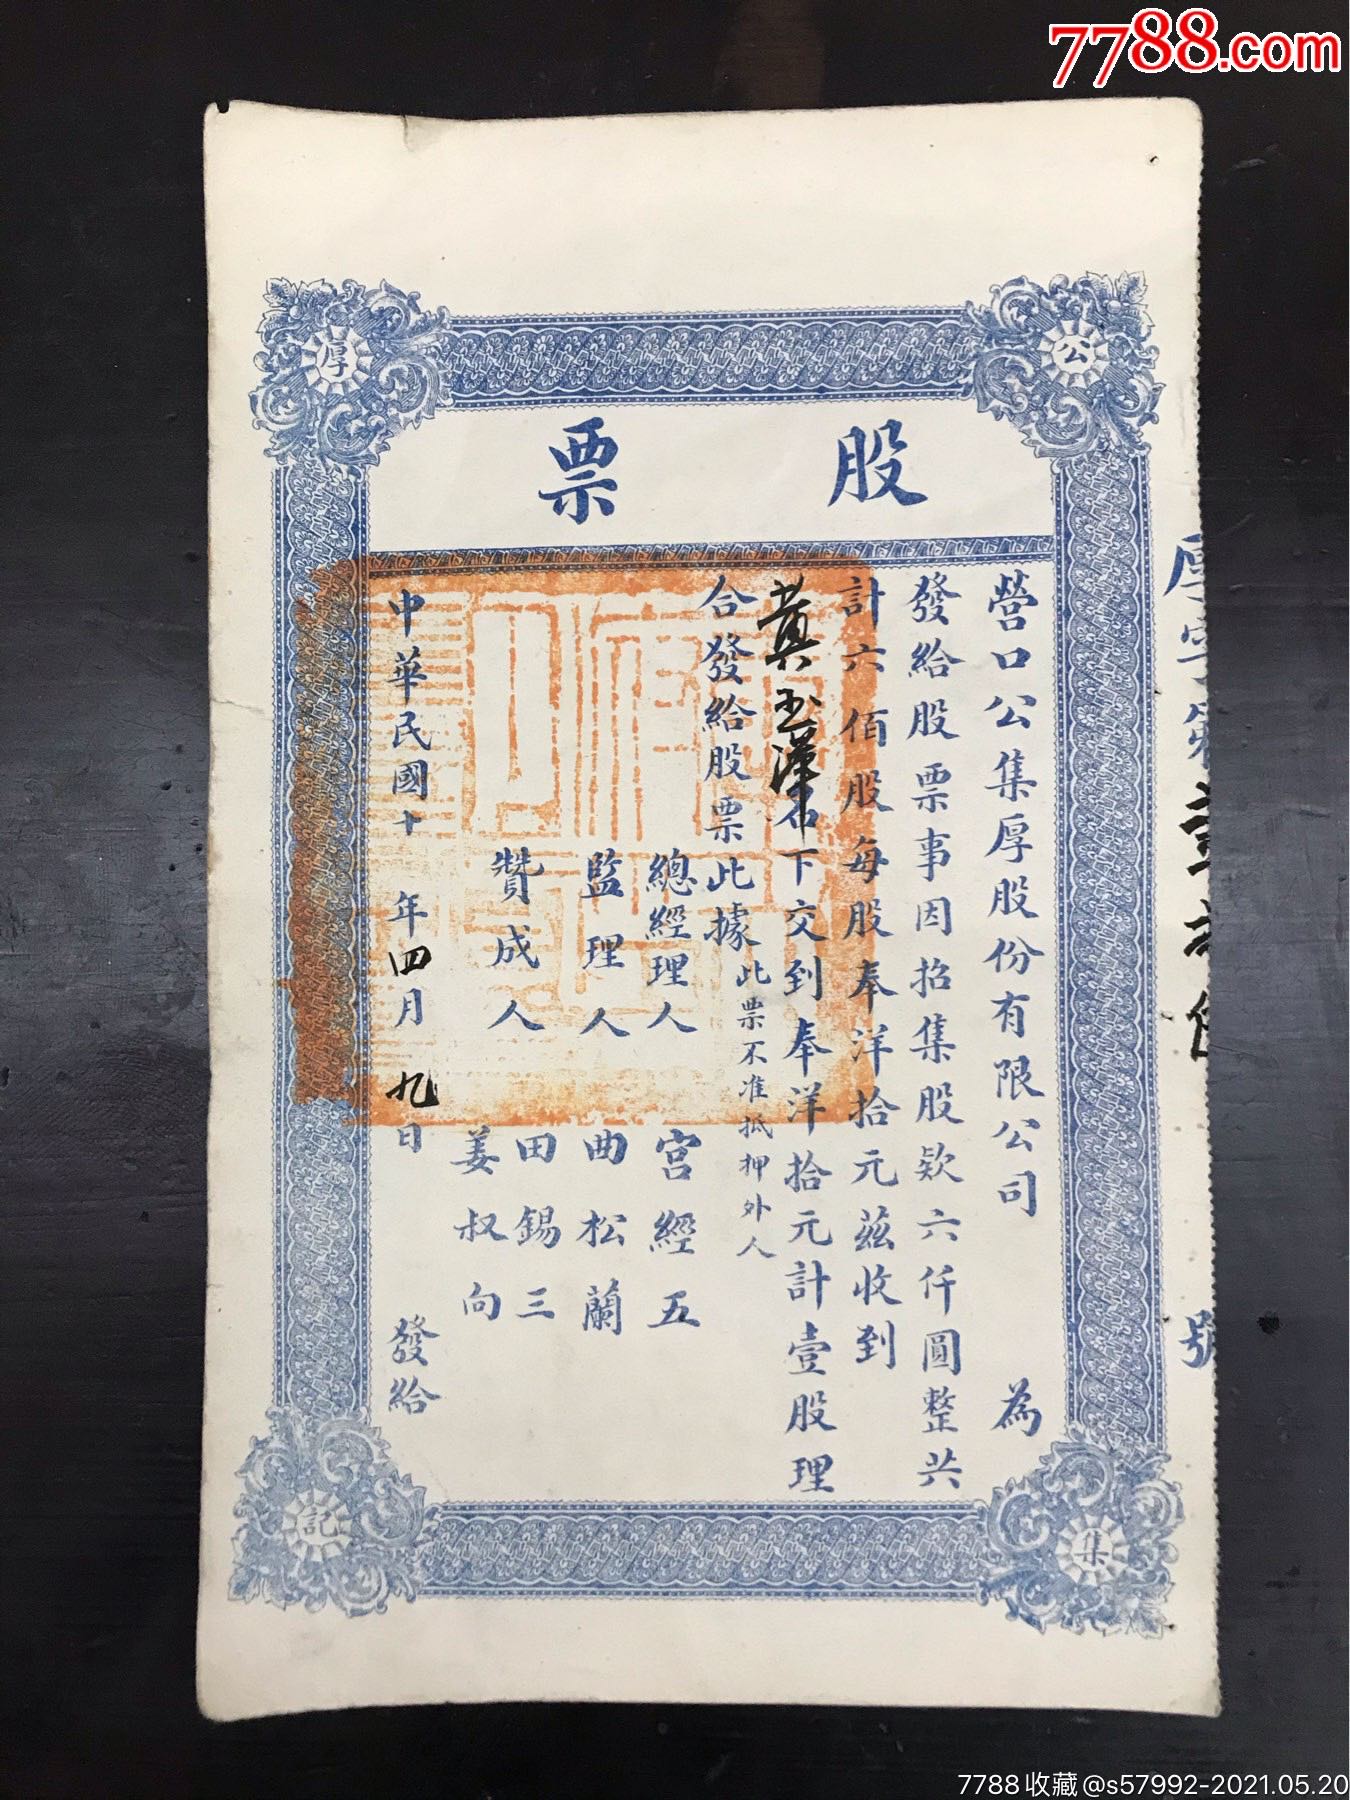 7788.com
股票
公
集
厚
記
營口公集厚股份有限公司為
發給股票事因招集股欵六仟圓整共
計六佰股每股奉洋拾元茲收到
黄玉漢名下交到奉洋拾元計壹股理
合發給股票此據此票不准抵押外人
總經理人宮經五
監理人曲松蘭
贊成人田錫三
姜叔向
中華民國十年四月九日發給
號
7788收藏@s57992-2021.05.20